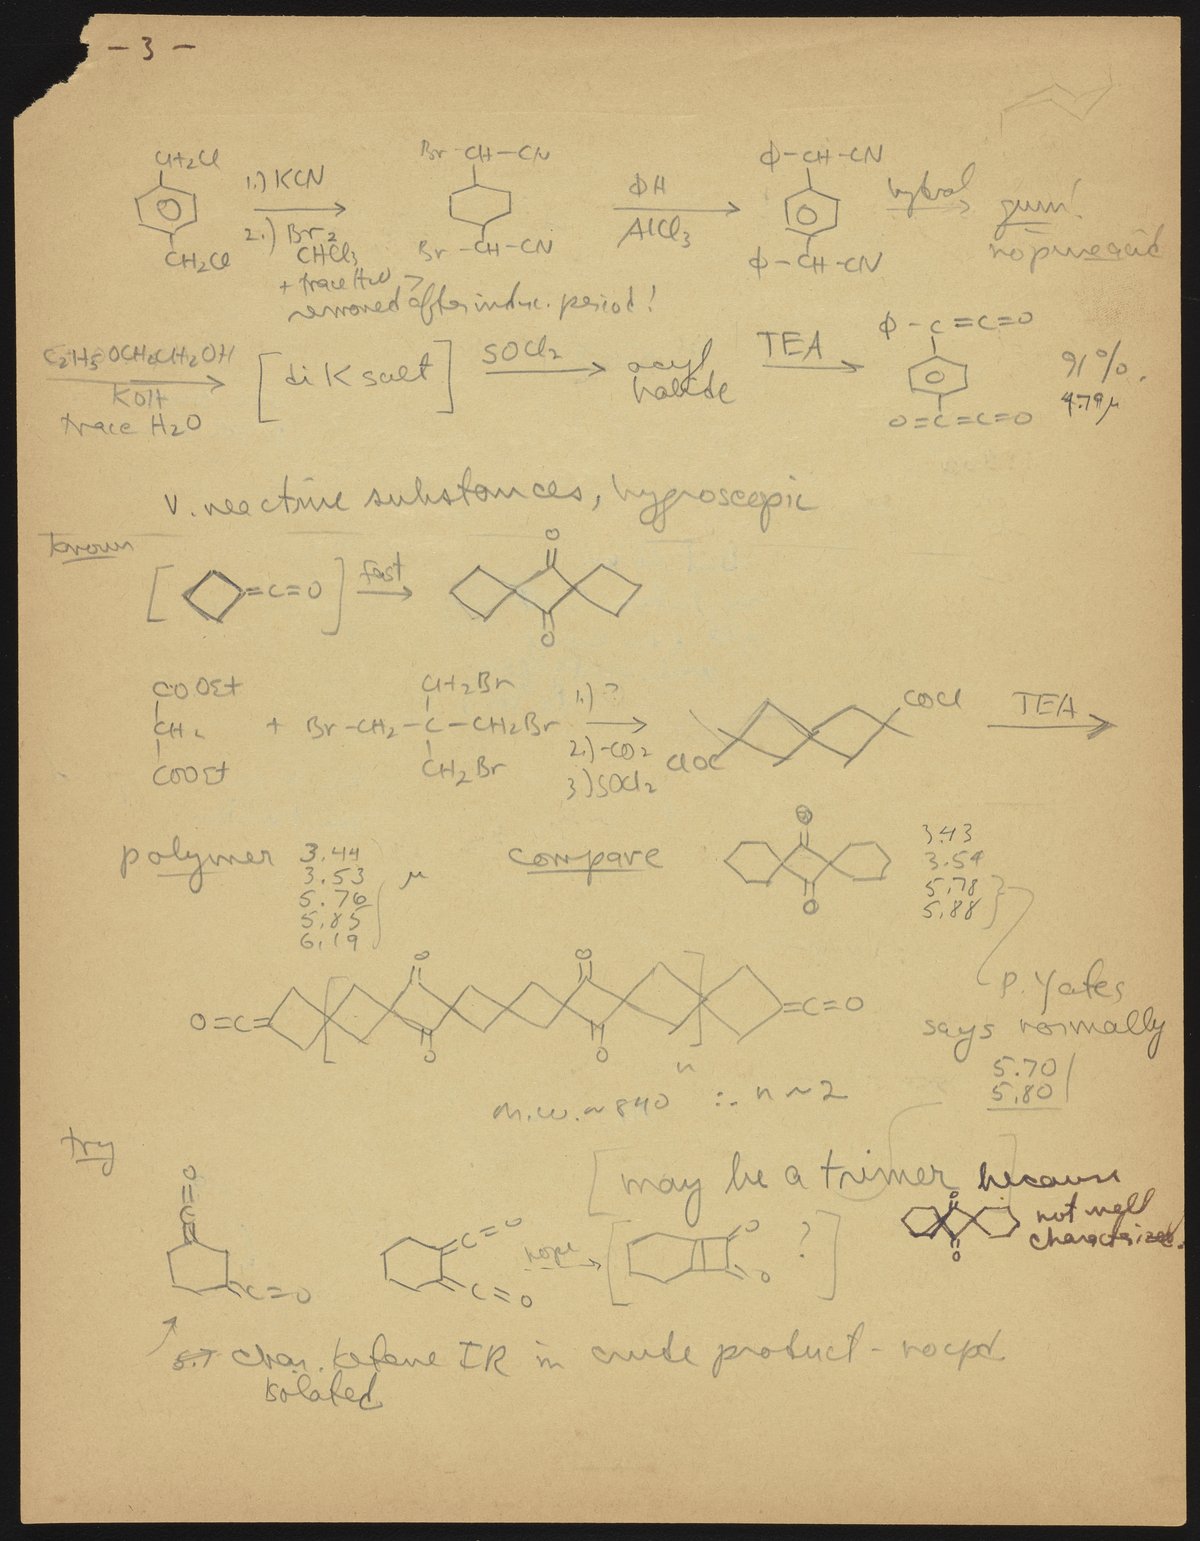 - 3 -
CH2Cl
CH2Cl
1.) KCN
2.) Br2
CHCl3
+ trace H2O
removed after induc. period!
Br-CH-CN
Br-CH-CN
ΦH
AlCl3
Φ-CH-CN
Φ-CH-CN
gum!
no pure acid
C2H5OCH2CH2OH
KOH
trace H2O
[di K salt]
SOCl2
acyl
halide
TEA
Φ-C=C=O
O=C=C=O
91%.
4.79μ
v. reactive substances, hygroscopic
known
[ =C=O ] fast
O
O
COOEt
CH2
COOEt
+
CH2Br
Br-CH2-C-CH2Br
CH2Br
1.) ?
2.) -CO2
3.) SOCl2
COCl
ClOC
TEA
polymer
3.44
3.53
5.76
5.85
6.19
μ
compare
O
O
3.43
3.54
5.78
5.88
P. Yates
says normally
5.70
5.80
O=C= [ O O O O ] n =C=O
M.W. ~ 840 ∴ n ~ 2
try
[may be a trimer] because
O O
not well
characterized.
O=C=
C=O
C=O
C=O
nope
[ O O ? ]
5.7 char. ketene IR in crude product - no cpd.
isolated